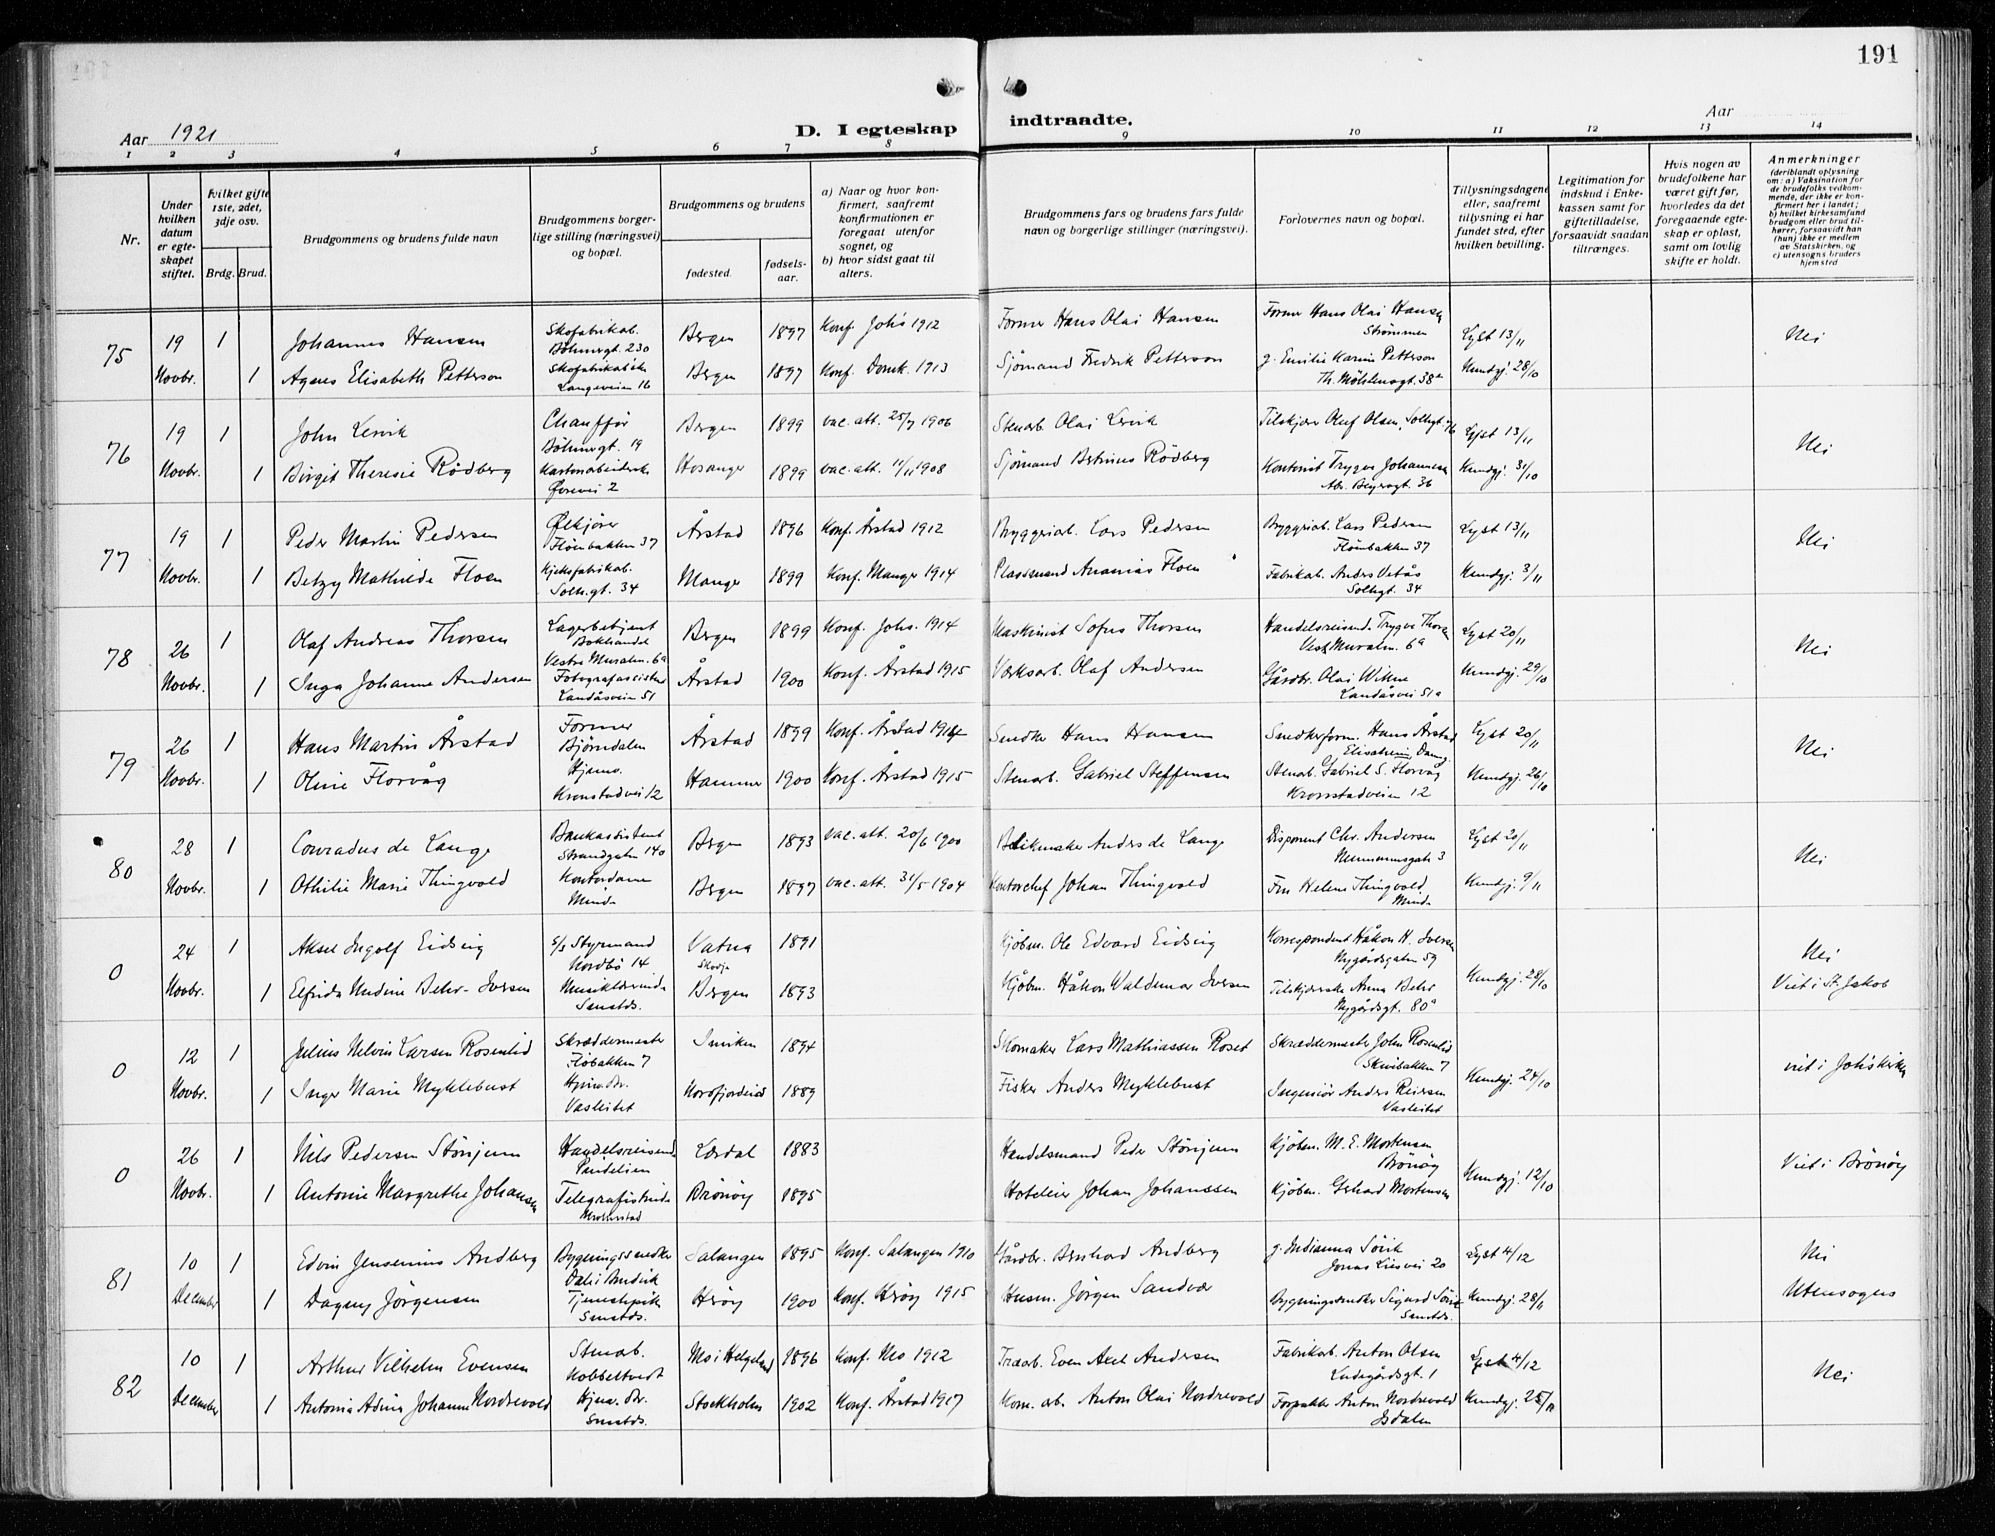 191
Aar 1921
D. I egteskap indtraadte.
Aar
1 2 3 4 5 6 7 8 9 10 11 12 13 14
Nr.
Under hvilken datum er egteskapet stiftet.
hvilket gifte 1ste, 2det, 3dje osv.
Brdg. Brud.
Brudgommens og brudens fulde navn
Brudgommens borgerlige stilling (næringsvei) og bopæl.
Brudgommens og brudens
fødested. fødselsaar.
a) Naar og hvor konfirmert, saafremt konfirmationen er foregaat utenfor sognet, og
b) hvor sidst gaat til alters.
Brudgommens fars og brudens fars fulde navn og borgerlige stillinger (næringsvei).
Forlovernes navn og bopæl.
Tillysningsdagene eller, saafremt tillysning ei har fundet sted, efter hvilken bevilling.
Legitimation for indskud i Enkekassen samt for giftetilladelse, forsaavidt saadan tiltrænges.
Hvis nogen av brudefolkene har været gift før, hvorledes da det foregaaende egteskap er opløst, samt om lovlig skifte er holdt.
Anmerkninger (deriblandt oplysning om: a) Vaksination for de brudefolks vedkommende, der ikke er konfirmert her i landet; b) hvilket kirkesamfund brudgom eller brud tilhører, forsaavidt han (hun) ikke er medlem av Statskirken, og c) utensogns bruders hjemsted
75 19 Novbr. 1 Johannes Hansen Skofabrikab. Bøhmergt. 230 Bergen 1897 Konf. Joh's 1912 Former Hans Olai Hansen Former Hans Olai Hansen Strømmen Lyst 13/11 Nei
1 Agnes Elisabeth Petterson Langeveien 16 Bergen 1897 Konf. Domk. 1913 Sjømand Fredrik Petterson g. Emilie Karine Petterson Th. Møhlensgt. 38a Kundgj. 28/10
76 19 Novbr. 1 John Lervik Chauffør Bøhmergt. 19 Bergen 1899 vac. att. 25/7 1906 Stenarb. Olai Lervik Tilskjærer Oluf Olsen, Solhgt. Lyst 13/11 Nei
1 Birgit Theresie Rødberg Hosanger 1899 vac. att. 11/11 1908 Sjømand Bertinus Rødberg Kontorist Trygve Johannesen 36 Kundgj. 31/10
77 19 Novbr. 1 Peder Martin Pedersen Ølkjører Fløenbakken 37 Årstad 1896 Konf. Årstad 1912 Bryggeriab. Lars Pedersen Bryggeriab. Lars Pedersen Fløenbakken 37 Lyst 13/11 Nei
1 Betzy Mathilde Floen Kjeksfabrikab. Solh.gt. 34 Manger 1899 Konf. Manger 1914 Plassmand Ananias Floen Fabrikab. Anders Vetås Solhgt. 34 Kundgj. 3/11
78 26 Novbr. 1 Olaf Andreas Thorsen Lagerbetjent Bokhandel Vestre Muralm. 6a Bergen 1899 Konf. Johs. 1914 Maskinist Sofus Thorsen Handelsreisend. Trygve Thorsen Vest. Muralm. 6a Lyst 20/11 Nei
1 Inga Johanne Andersen Landåsveien 51 Årstad 1900 Konf. Årstad 1915 Værksarb. Olaf Andersen Gårdbr. Olai Wikne Landåsvei 51a Kundgj. 29/10
79 26 Novbr. 1 Hans Martin Årstad Former Bjørndalen Årstad 1899 Konf. Årstad 1914 Snedker Hans Hansen Snedkerform. Hans Årstad Lyst 20/11 Nei
1 Oline Florvåg Hjemv. Kronstadvei 12 Hammer 1900 Konf. Årstad 1915 Stenarb. Gabriel Steffensen Stenarb. Gabriel S. Florvåg Kronstadveien 12 Kundgj. 26/10
80 28 Novbr. 1 Conradus de Lange Bankassistent Strandgaten 140 Bergen 1893 vac. att. 20/6 1900 Blikmaker Anders de Lange Disponent Chr. Andersen Neumannsgate 3 Lyst 20/11 Nei
1 Othilie Marie Thingvold Kontordame Minde Bergen 1897 vac. att. 31/5 1904 Kontorchef Johan Thingvold Fru Helene Thingvold Minde Kundgj. 9/11
0 24 Novbr. 1 Aksel Ingolf Eidsvig Styrmand Nordbø 14 Vatna Skodje 1891 Kjøbm. Ole Edvard Eidsvig Korrespondent Håkon H. Iversen Nygårdsgaten 59 Nei
1 Elfrida Nudine Behr-Iversen Musiklærerinde Samstds. Bergen 1893 Kjøbm. Håkon Waldemar Iversen Tilskjærerske Anna Behr Nygårdsgt. 80a Kundgj. 28/10 Viet i St. Jakob
0 12 Novbr. 1 Julius Melvin Larsen Rosenlid Skræddermester Fløbakken 7 1894 Skomaker Lars Mathiassen Roset Skræddermester John Rosenlid Skivebakken 7 viet i Joh'skirken
1 Inger Marie Myklebust Hjemv. Vasleitet Nordfjordeid 1889 Fisker Anders Myklebust Ingeniør Anders Reiersen Vasleitet Kundgj. 24/10
0 26 Novbr. 1 Nils Pedersen Stønjum Handelsreisende Lærdal 1883 Handelsmand Peder Stønjum Kjøbm. M. E. Mortensen Brönöy
1 Antonie Margrethe Johansen Telegrafistinde Brönöy 1895 Hoteleier Johan Johanssen Kjøbm. Gerhard Mortensen Kundgj. 12/10 Viet i Brönöy
81 10 December 1 Edvin Jensenius Andberg Bygningssnedker Salangen 1895 Konf. Salangen 1910 Gårdbr. Bernhard Andberg g. Indianna Sörik Jonas Liesvei 20 Lyst 4/12 Nei
1 Dagny Jørgensen Tjenestepike Samstds. Herøy 1900 Konf. Herøy 1915 Husm. Jørgen Sandvær Bygningssnedker Sigurd Samstds. Kundgj. 28/11 Utensogns
82 10 December 1 Arthur Vilhelm Evensen Stenab. Kobbeltvedt Mo i Helgeland 1896 Konf. Mo 1912 Træarb. Even Axel Andersen Fabrikab. Anton Olsen Ladegårdsgt. 1 Lyst 4/12 Nei
1 Antonia Adina Johanne Nordrevold Hjem. Samstds. Stockholm 1902 Konf. Årstad 1917 Kom. ab. Anton Olai Nordrevold Forpakter Anton Nordrevold Isdalen Kundgj. 25/11